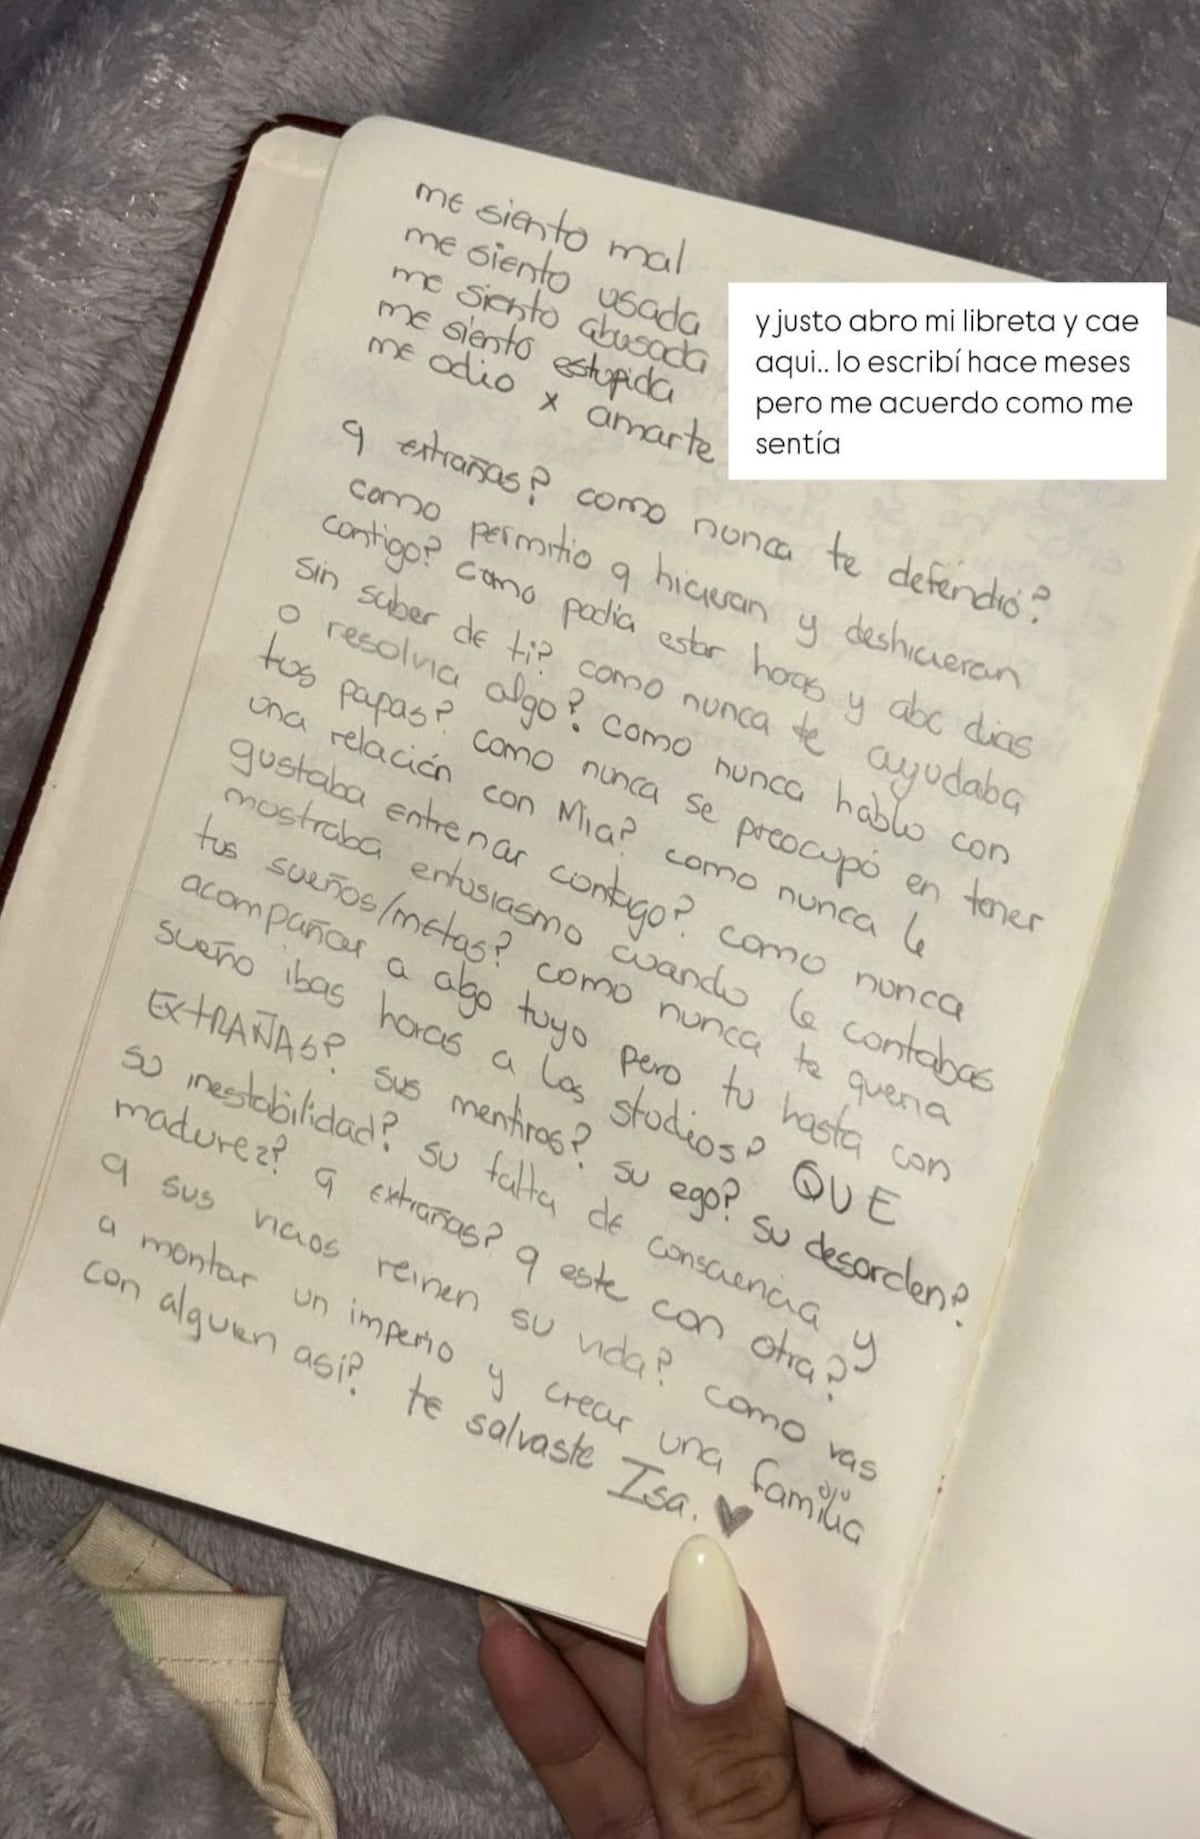 me siento mal
me siento usada
me siento abusada
me siento estupida
me odio x amarte
y justo abro mi libreta y cae
aqui.. lo escribí hace meses
pero me acuerdo como me
sentía
q extrañas? como nunca te defendió?
como permitio q hicieran y deshicieran
contigo? como podia estar horas y abc dias
sin saber de ti? como nunca te ayudaba
o resolvia algo? como nunca hablo con
tus papas? como nunca se preocupó en tener
una relación con Mia? como nunca le
gustaba entrenar contigo? como nunca
mostraba entusiasmo cuando le contabas
tus sueños/metas? como nunca te queria
acompañar a algo tuyo pero tu hasta con
sueño ibas horas a los studios? QUE
EXtRAÑAs? sus mentiras? su ego? su desorden?
su inestabilidad? su falta de consciencia y
madurez? q extrañas? q este con otra?
q sus vicios reinen su vida? como vas
a montar un imperio y crear una familia
con alguien asi? te salvaste Isa. ♥